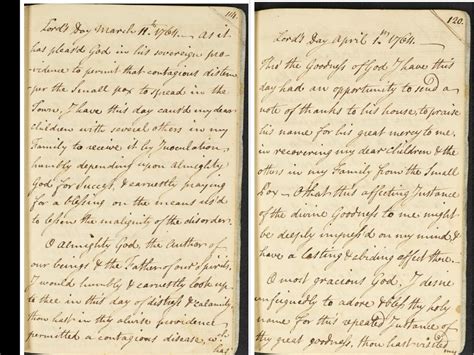 114.
Lord's Day March 11th. 1764. — As it
has pleas'd God in his sovereign pro-
vidence to permit that contagious distem
per the Small pox to spread in the
Town, I have this day caus'd my dear
children with several others in my
Family to receive it by Inoculation
humbly depending upon almighty
God for Success, & earnestly praying
for a blessing on the means us'd
to lessen the malignity of the disorder.
O Almighty God, the Author of
our beings & the Father of our Spirits,
I would humbly & earnestly look up
to thee in this day of distress & calamity,
thou hast in thy alwise providence
permitted a contagious disease, wch.
has
120.
Lord's Day April 1st. 1764. —
Thro the Goodness of God I have this
day had an opportunity to send a
note of thanks to his house, to praise
his name for his great mercy to me,
in recovering my dear children & the
others in my Family from the Small
Pox — O that this affecting Instance
of the divine Goodness to me might
be deeply impress'd on my mind, &
have a lasting & abiding effect thro.
O most gracious God, I desire
unfeignedly to adore & bless thy holy
name For this repeated Instance of
thy great goodness, thou hast visited